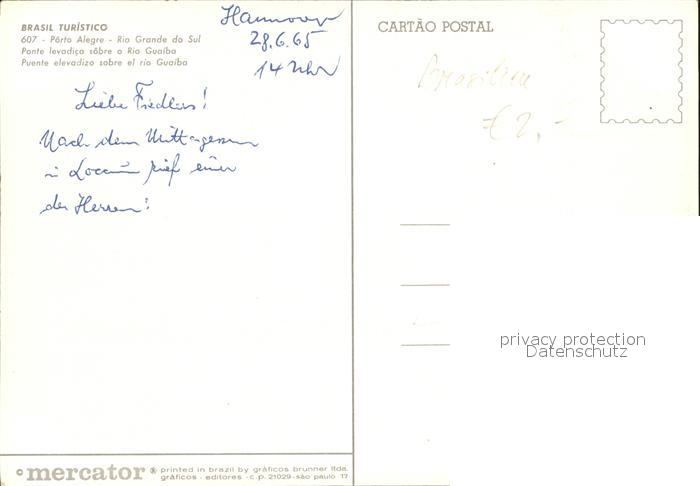 BRASIL TURÍSTICO
607 - Pôrto Alegre - Rio Grande do Sul
Ponte levadiça sôbre o Rio Guaíba
Puente elevadizo sobre el río Guaíba
Hannover
28.6.65
14 Uhr
Liebe Fiedlers!
Nach dem Mittagessen
in Loccum rief einer
der Herren:
© mercator ® printed in brazil by gráficos brunner ltda.
gráficos - editores - c.p. 21029 - são paulo 17
CARTÃO POSTAL
Brasilien
€ 2,
privacy protection
Datenschutz